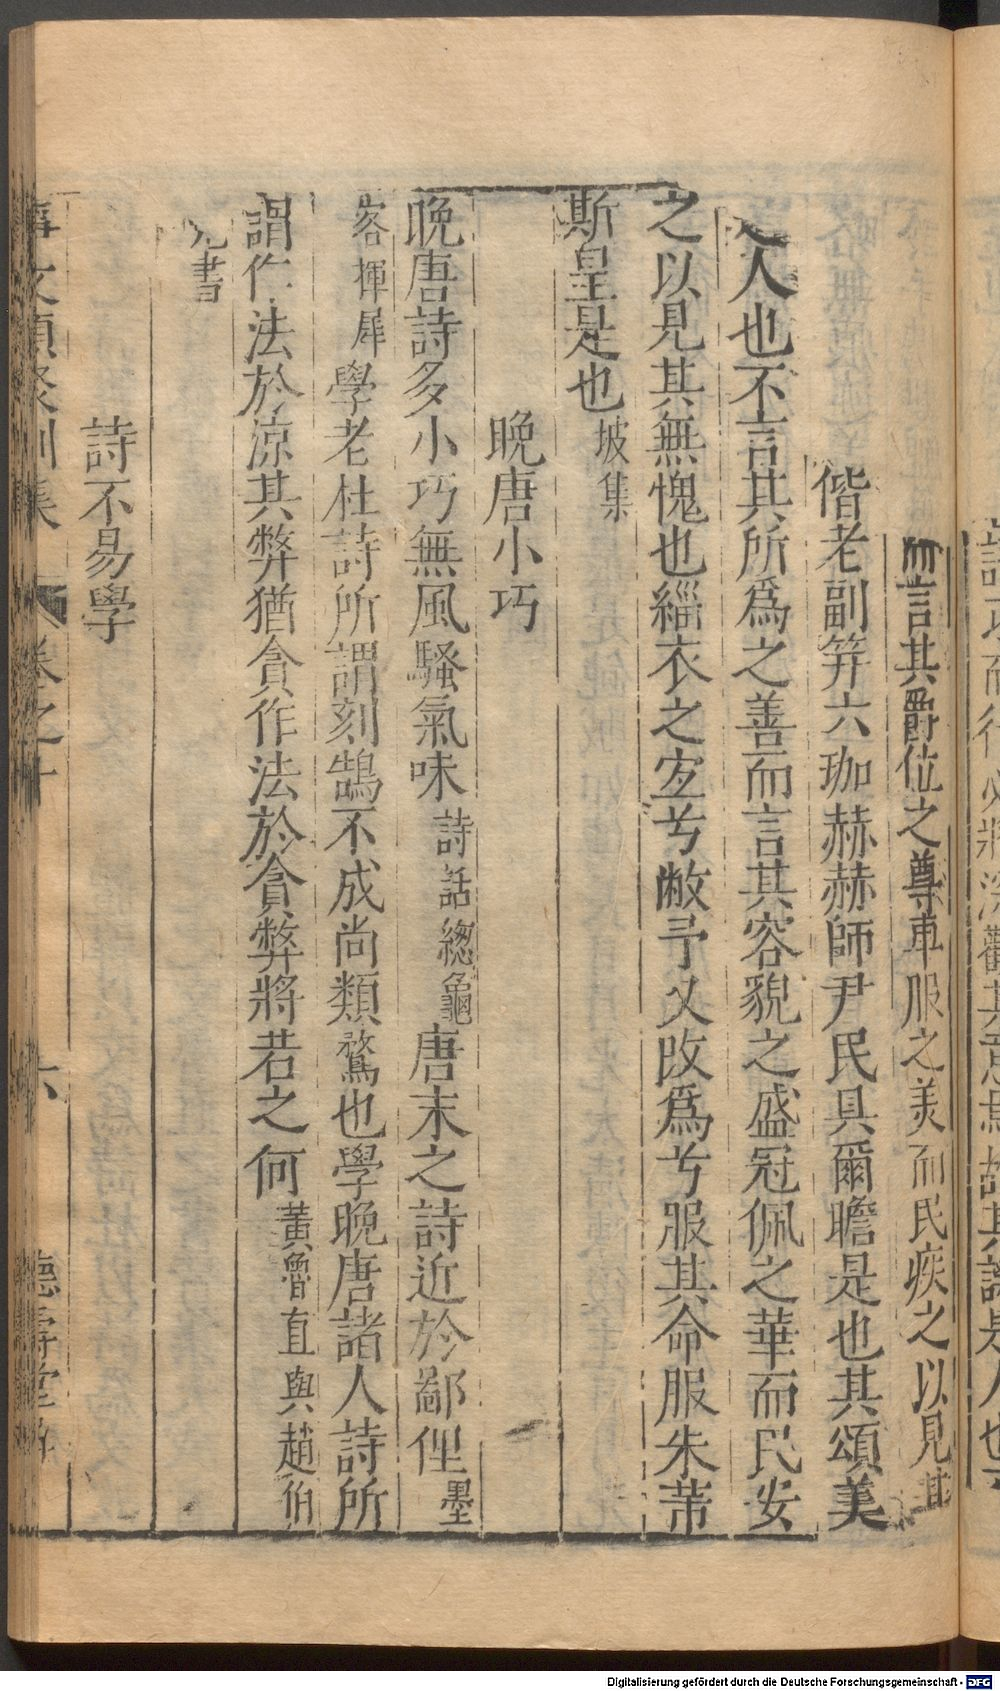 而言其爵位之尊車服之美而民疾之以見其
偕老副笄六珈赫赫師尹民具爾瞻是也其頌美
人也不言其所爲之善而言其容貌之盛冠佩之華而民安
之以見其無愧也緇衣之宜兮敝予又改爲兮服其命服朱芾
斯皇是也坡集
晚唐小巧
晚唐詩多小巧無風騷氣味詩話總龜唐末之詩近於鄙俚墨
客揮犀學老杜詩所謂刻鵠不成尚類鶩也學晚唐諸人詩所
謂作法於涼其弊猶貪作法於貪弊將若之何黃魯直與趙伯
充書
詩不易學
事文類聚別集
卷之十
六
德壽堂梓
Digitalisierung gefördert durch die Deutsche Forschungsgemeinschaft - DFG